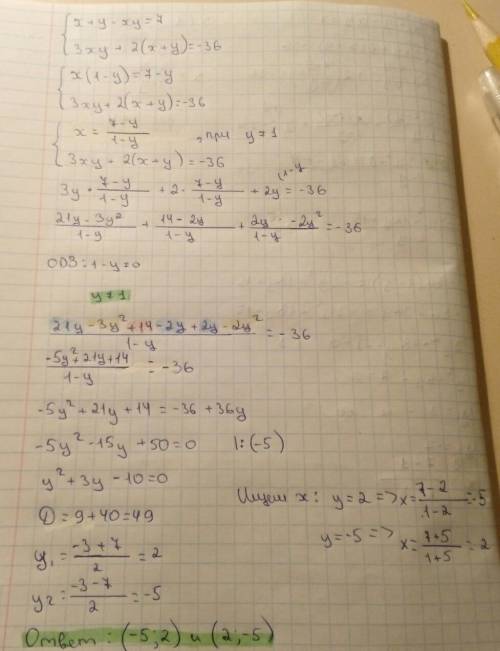 { x + y - xy = 7
3xy + 2(x+y) = -36
{ x(1-y) = 7-y
3xy + 2(x+y) = -36
{ x = 7-y / 1-y , при y≠1
3xy + 2(x+y) = -36
3y · 7-y / 1-y + 2 · 7-y / 1-y + 2y (1-y = -36
21y - 3y² / 1-y + 14-2y / 1-y + 2y - 2y² / 1-y = -36
ОДЗ: 1-y≠0
y≠1
21y - 3y² + 14 - 2y + 2y - 2y² / 1-y = -36
-5y² + 21y + 14 / 1-y = -36
-5y² + 21y + 14 = -36 + 36y
-5y² - 15y + 50 = 0 |:(-5)
y² + 3y - 10 = 0
D = 9 + 40 = 49
y₁ = -3+7 / 2 = 2
y₂ = -3-7 / 2 = -5
Ищем x: y = 2 => x = 7-2 / 1-2 = -5
y = -5 => x = 7+5 / 1+5 = 2
Ответ: (-5; 2) и (2; -5)